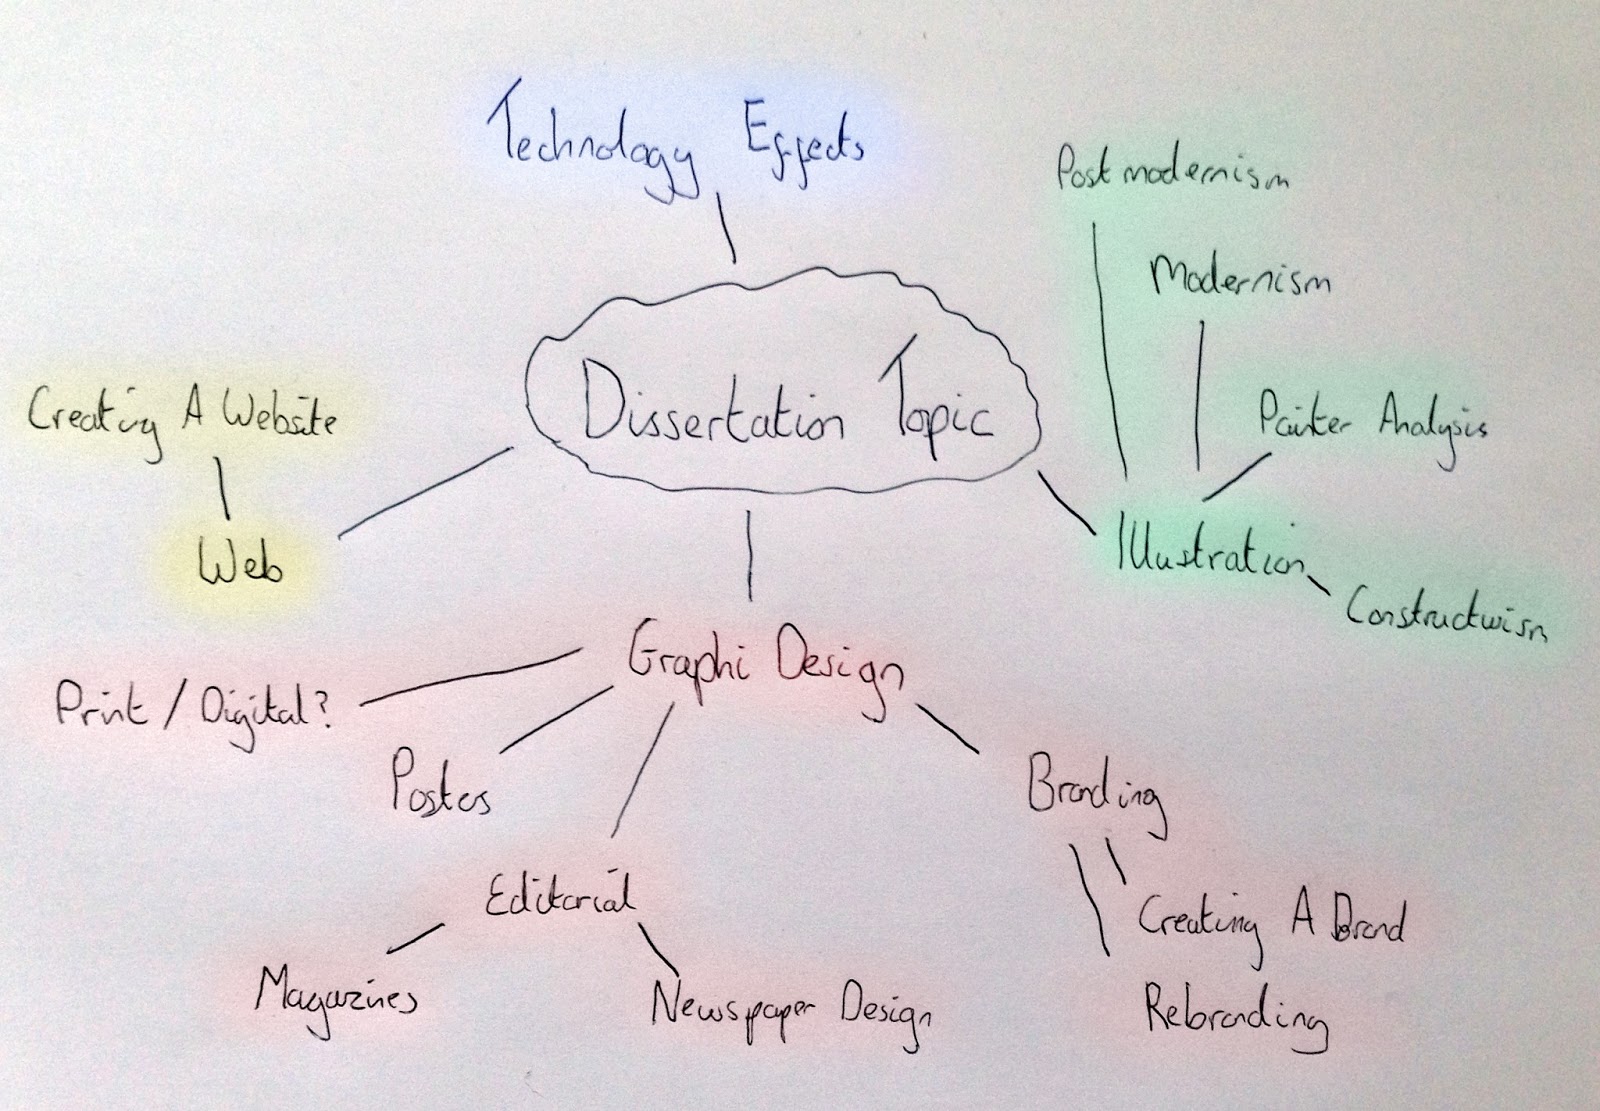 Technology Effects
Postmodernism
Modernism
Dissertation Topic
Creating A Website
Painter Analysis
Web
Illustration
Constructivism
Graphi Design
Print / Digital?
Postes
Branding
Editorial
Creating A Brand
Magazines
Newspaper Design
Rebranding